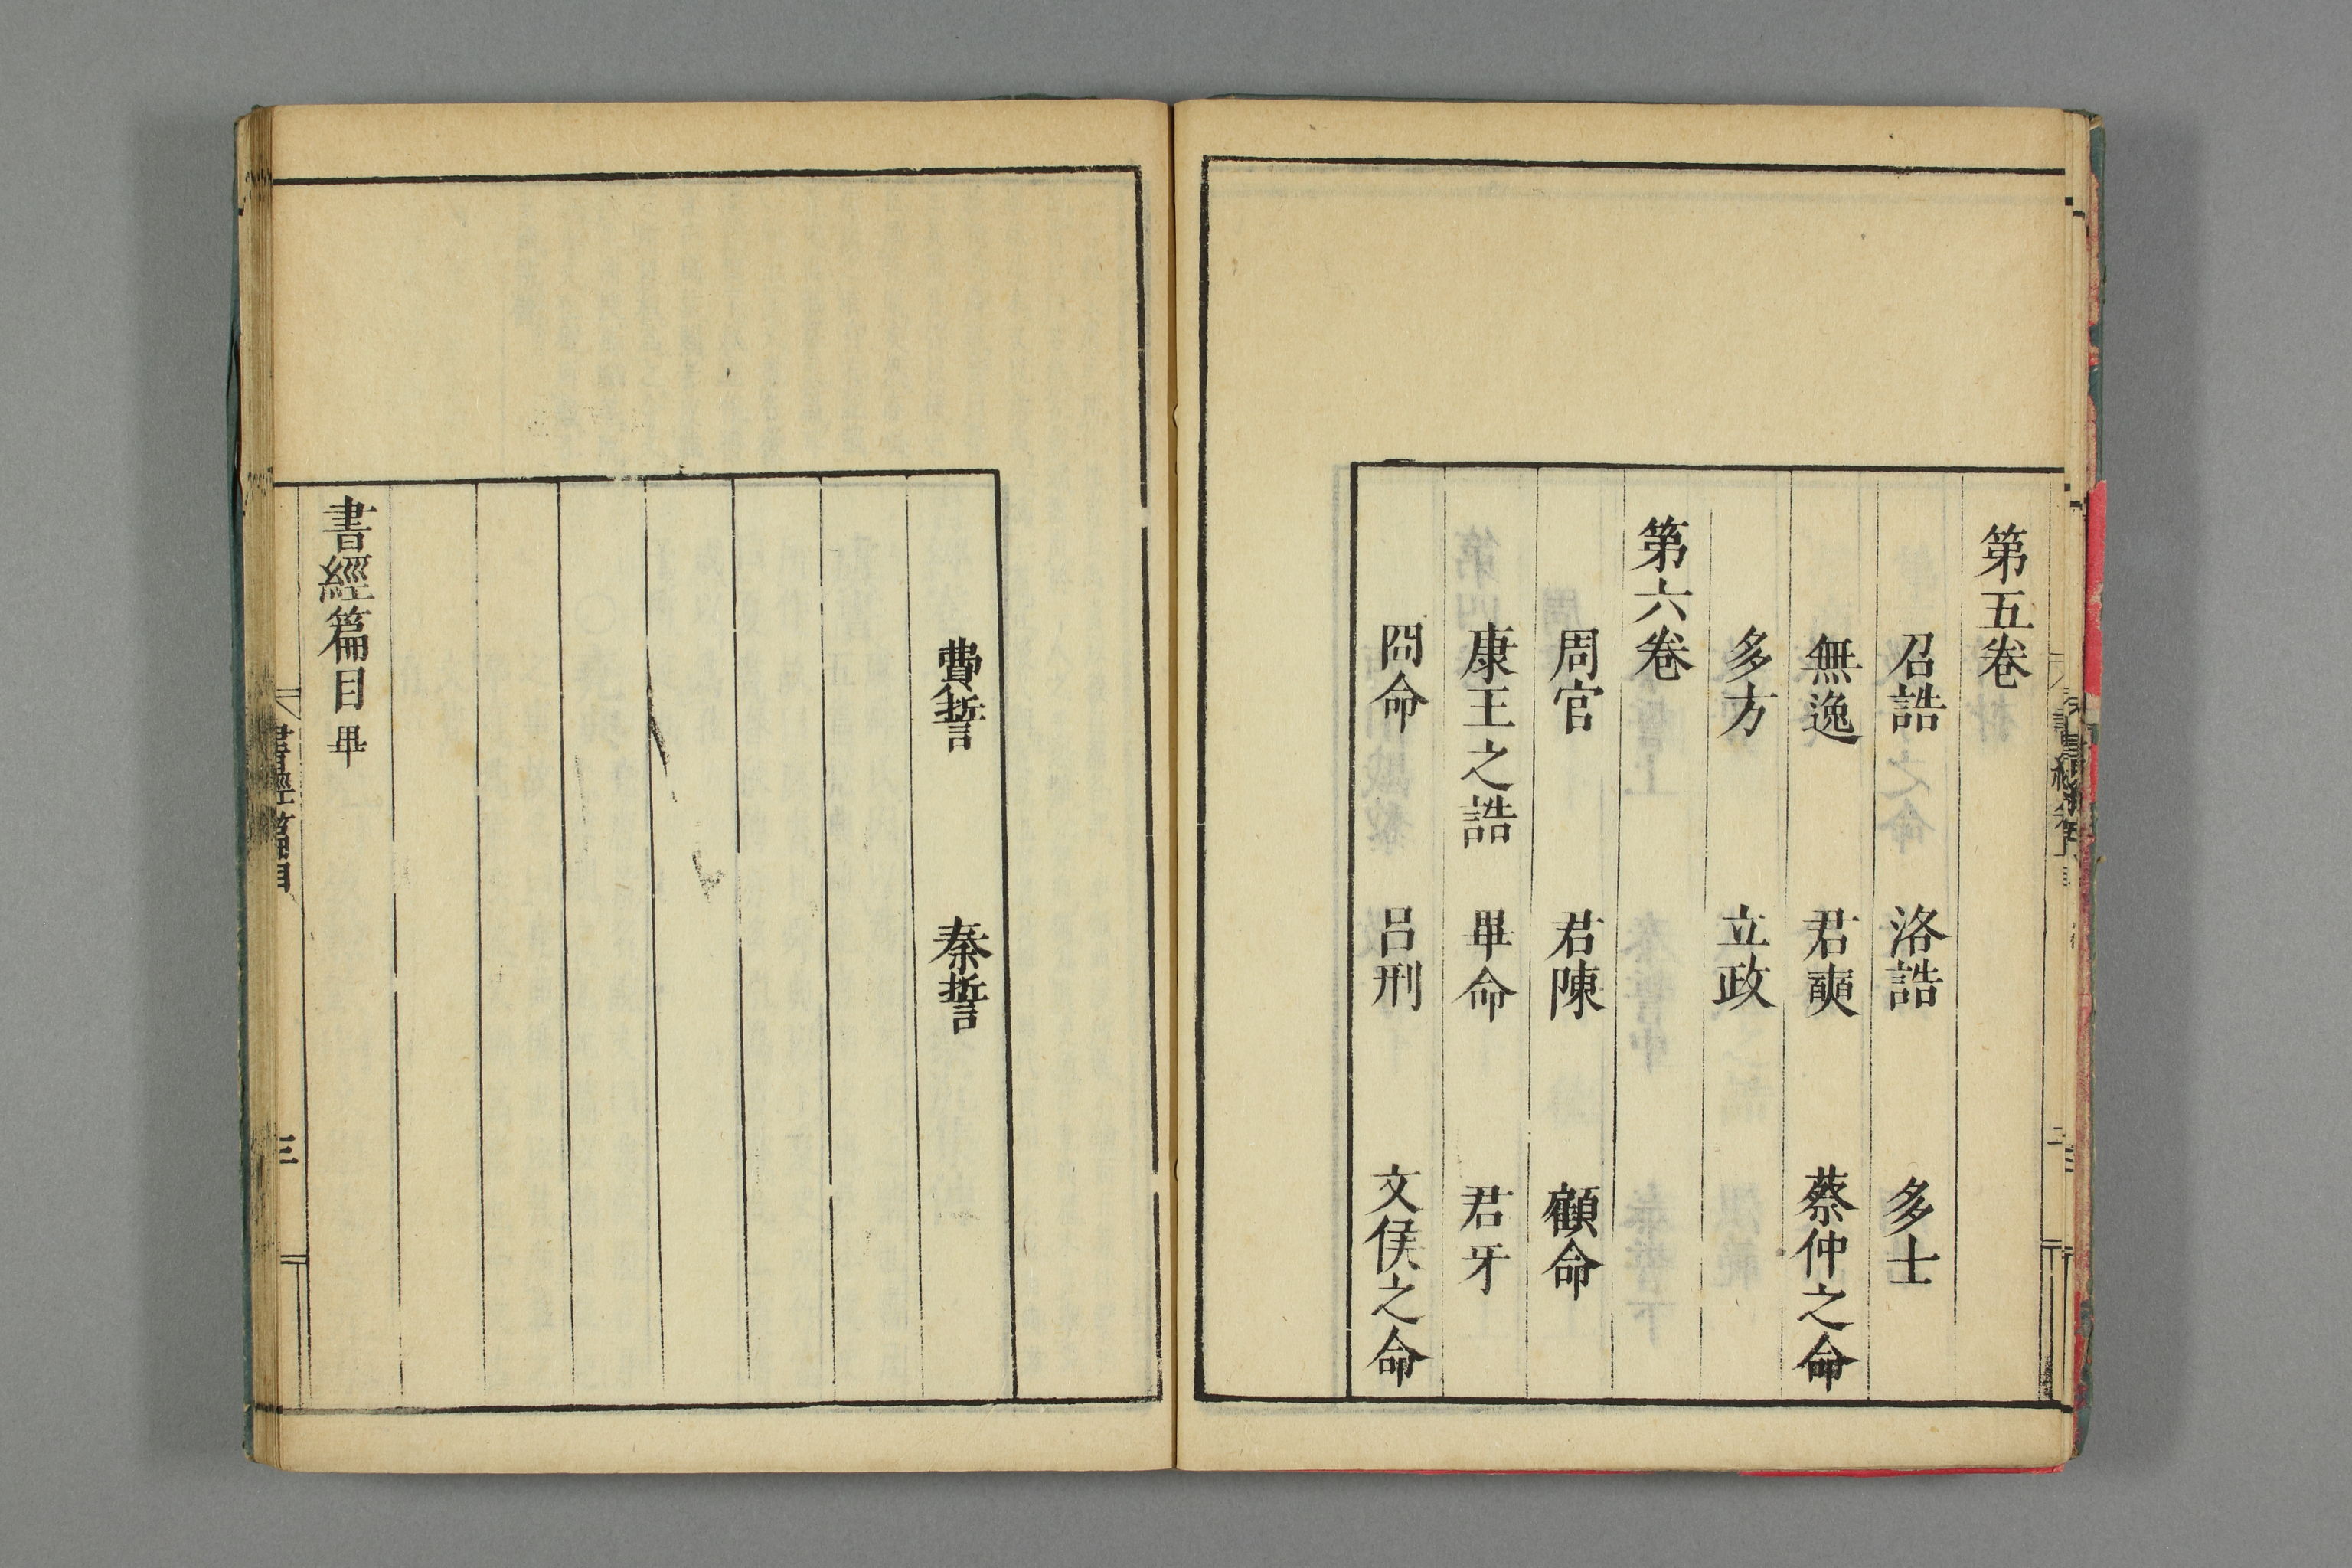 第五卷
召誥 洛誥 多士
無逸 君奭 蔡仲之命
多方 立政
第六卷
周官 君陳 顧命
康王之誥 畢命 君牙
冏命 呂刑 文侯之命
費誓 秦誓
書經篇目畢
書經篇目
三